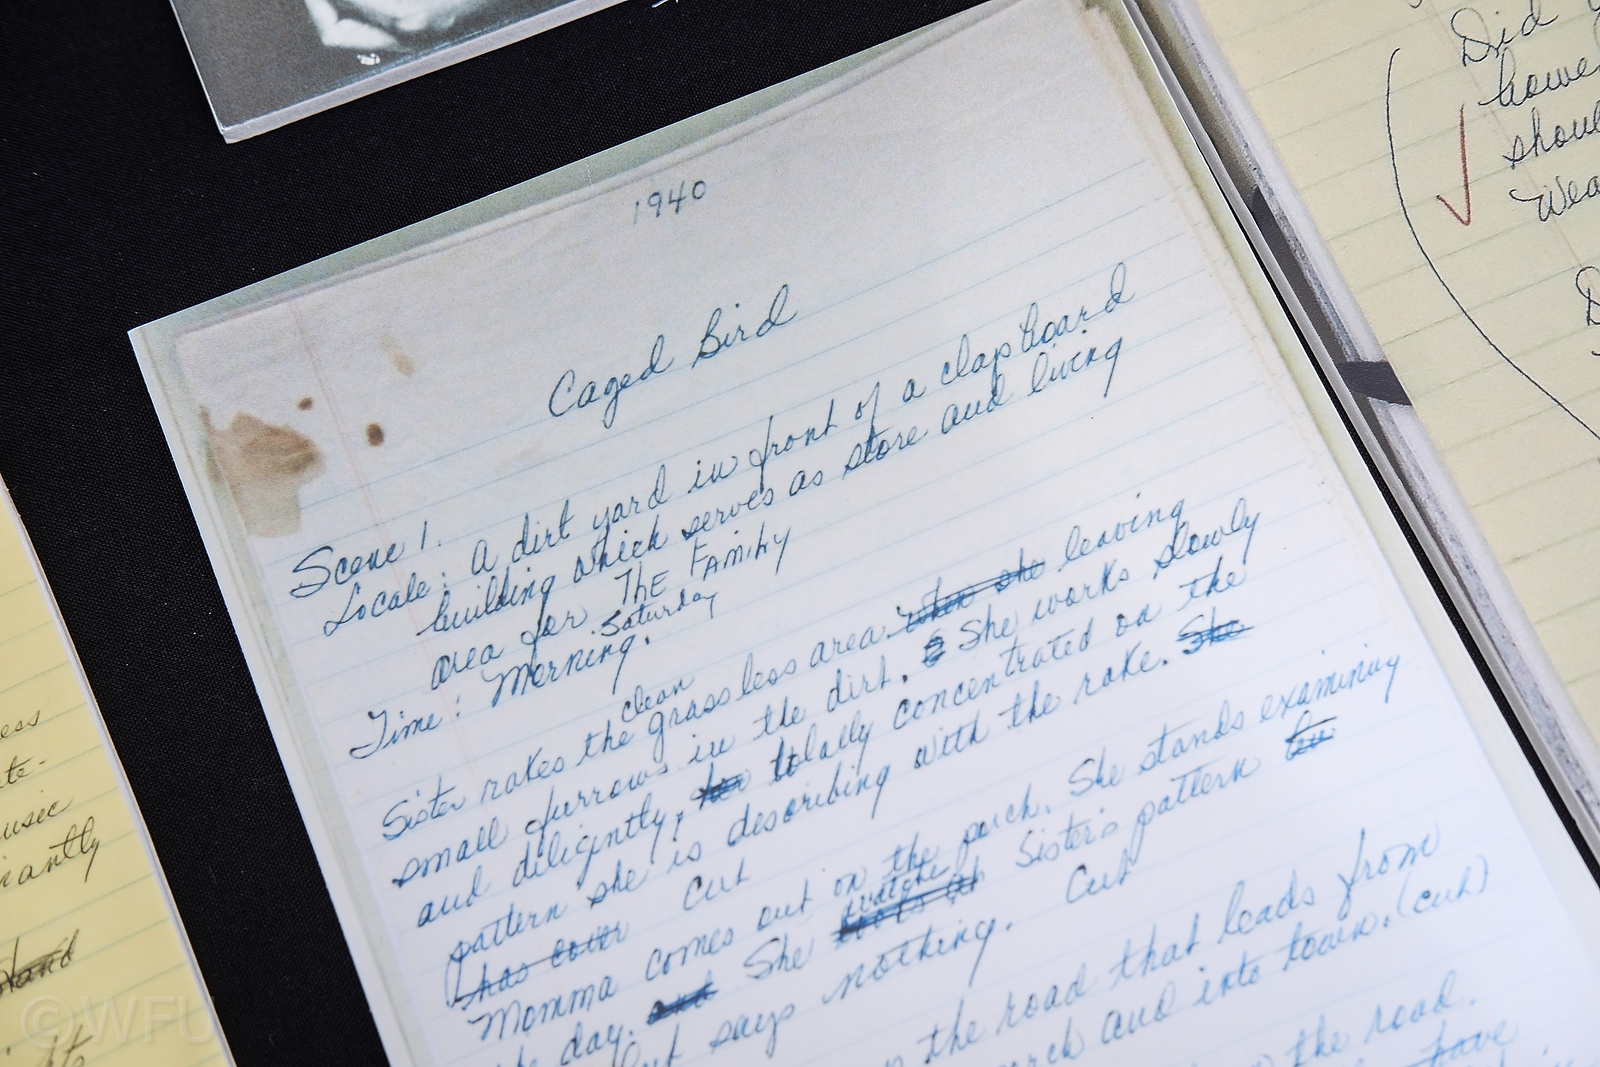 1940
Caged Bird
Scene 1.
Locale: A dirt yard in front of a clapboard
building which serves as store and living
area for THE FAMILY
Saturday
Time: Morning.
clean
Sister rakes the grassless area when she leaving
small furrows in the dirt. She works slowly
and diligintly, her totally concentrated on the
pattern she is describing with the rake. She
has cover cut
Momma comes out on the porch. She stands examining
watches
the day. and She looks at Sister's pattern
but says nothing. Cut
the road that leads from
and into town. (cut)
the road.
have
Did
howe
shoul
Wea
D
ess
te-
usic
antly
stand
©WFU